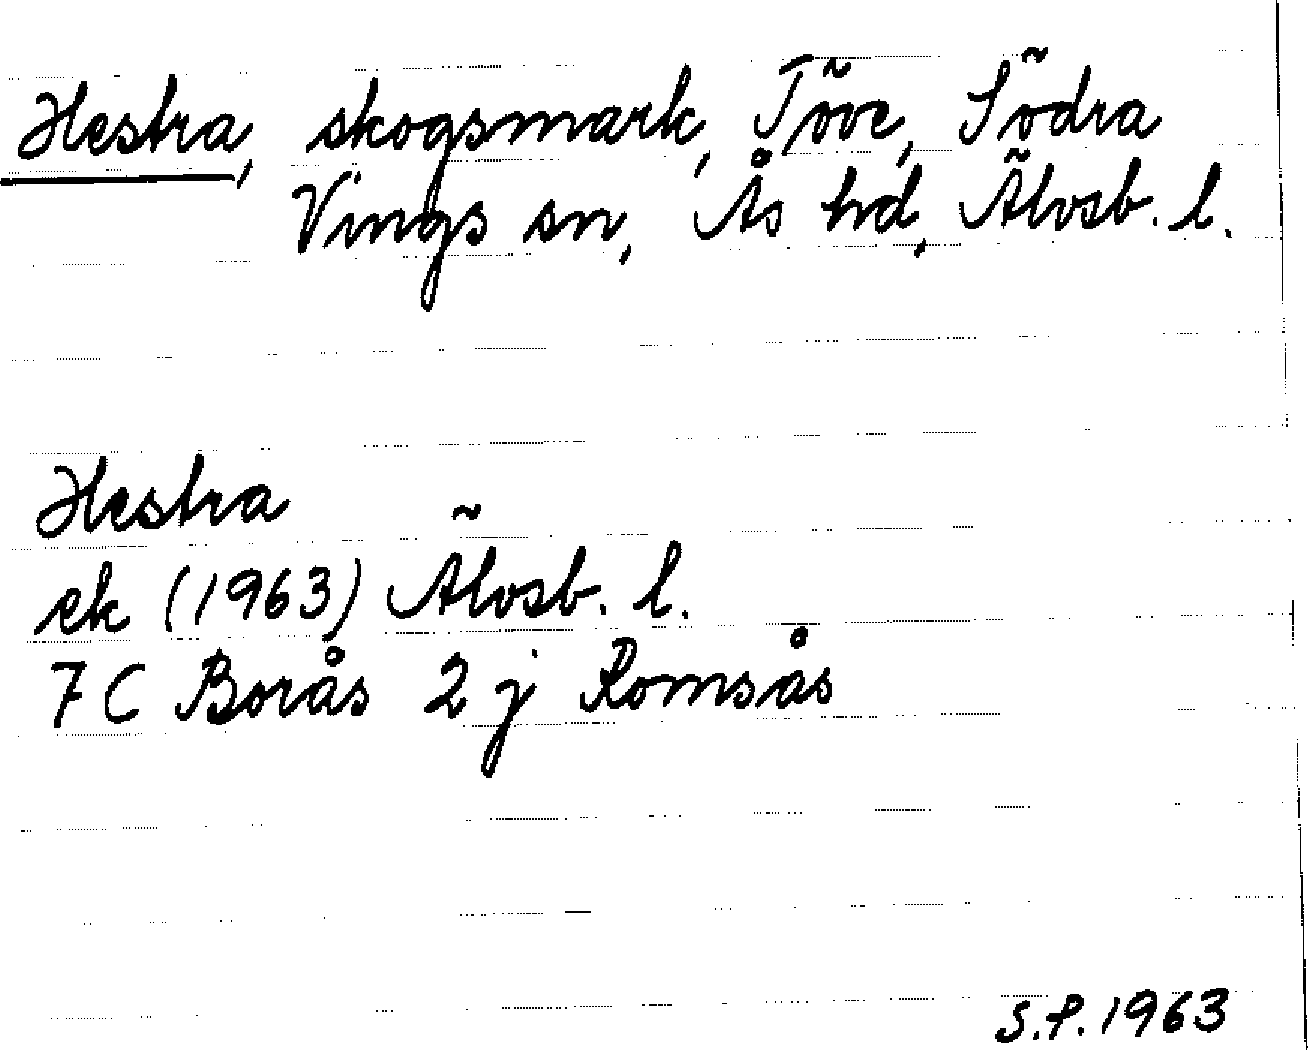 Hestra, skogsmark, Töve, Södra
Vings sn, Ås hd, Älvsb. l.
Hestra
ek (1963) Älvsb. l.
7 C Borås 2 j Romsås
S.P. 1963